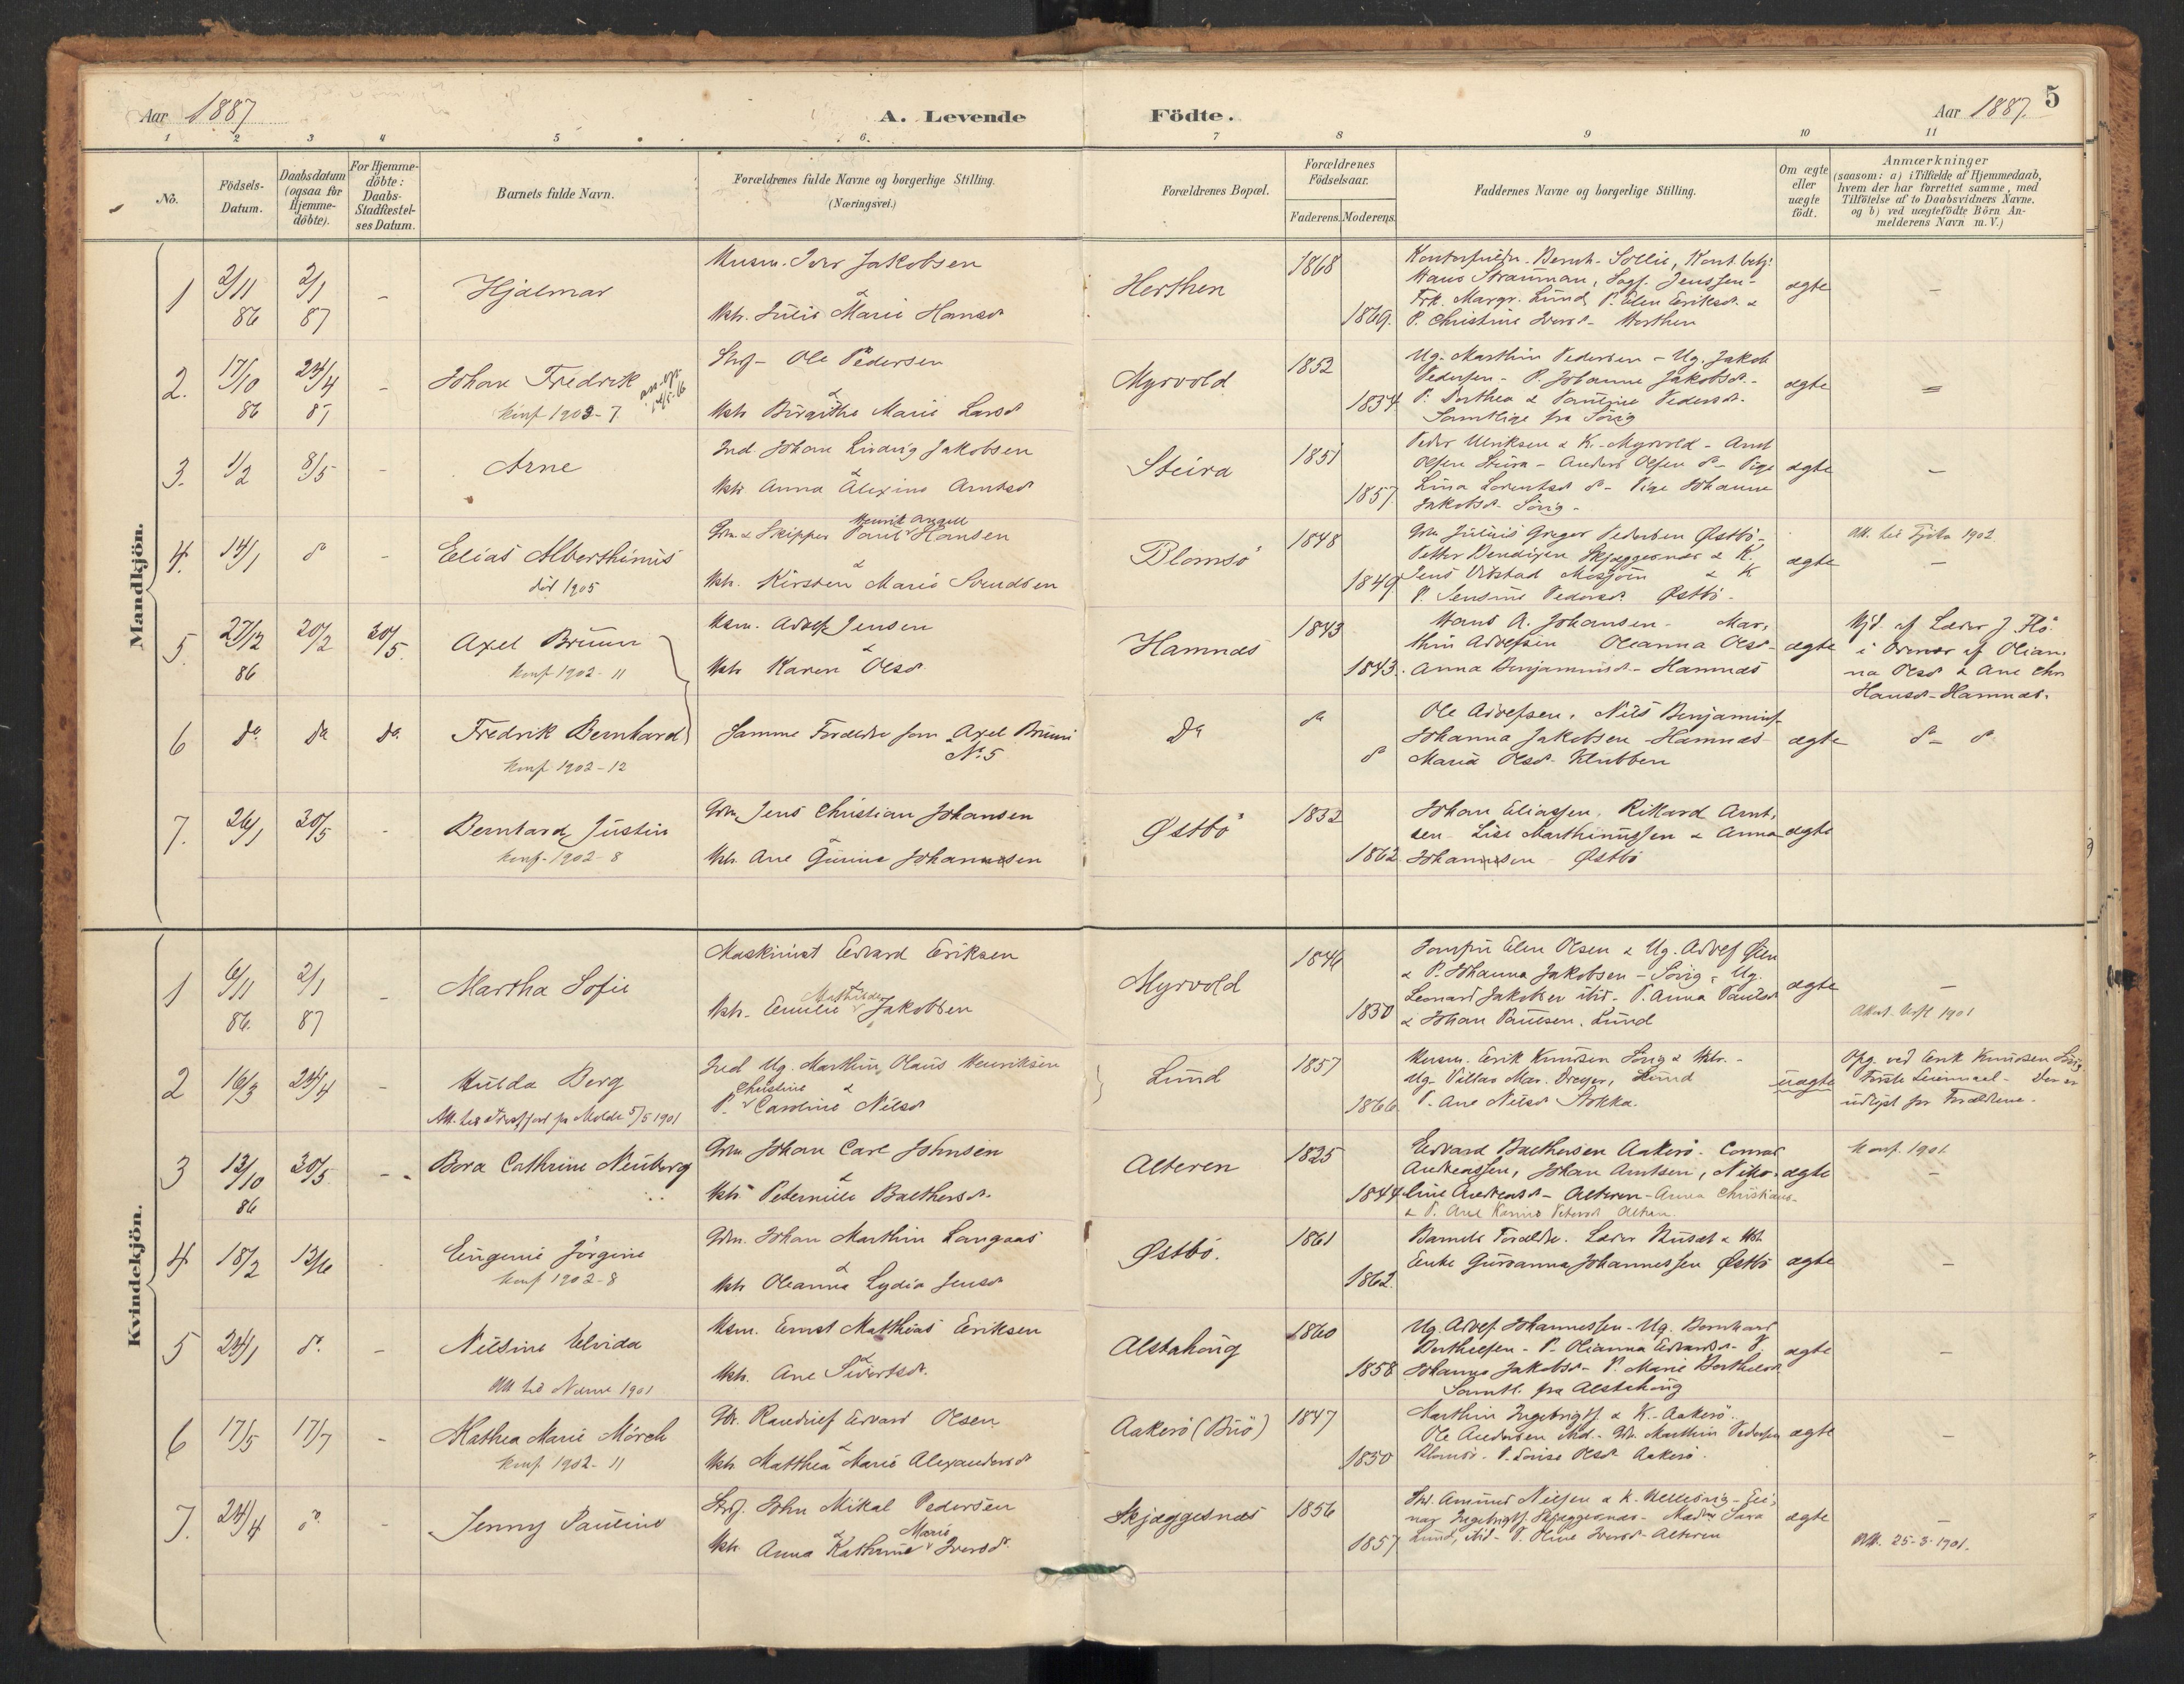 Aar 1887
A. Levende
Födte.
Aar 1887.
5
1 2 3 4 5 6. 7 8 9 10 11
No.
Födsels-Datum.
Daabsdatum (ogsaa for Hjemme-döbte).
For Hjemme-döbte: Daabs-Stadfæstel-ses Datum.
Barnets fulde Navn.
Forældrenes fulde Navne og borgerlige Stilling.
(Næringsvei.)
Forældrenes Bopæl.
Forældrenes Födselsaar.
Faderens. Moderens.
Faddernes Navne og borgerlige Stilling.
Om ægte eller uægte födt.
Anmærkninger
(saasom: a) i Tilfælde af Hjemmedaab,
hvem der har forrettet samme, med
Tilföielse af to Daabsvidners Navne.
og b) ved uægtefödte Börn An-
melderens Navn m. V.)
Mandkjön.
1 2/11 86 2/1 87 - Hjalmar
Husm. Iver Jakobsen
&
Hstr. Julie Marie Hansd
Herthen 1868 1869.
Hans Strauman, Jenssen-
Frk. Margr. Lund, P. Elen Eriksd. &
P. Christine Iversd. Herthen
ægte -
2. 17/10 86 24/4 87 - Johan Fredrik
Konf 1903-7.
Ole Pedersen
&
Hstr Birgithe Marie Larsd
Myrvold 1852 1854
Ug. Marthin Pedersen - Ug. Jakob
Pedersen - P. Johanne Jakobsd. -
P. Dorthea & Pauline Pedersd.
Samtlige fra Sörig
ægte =
3. 1/2 8/5 - Arne
Ind. Johan Ludvig Jakobsen
&
Hstr Anna Alexine Arntsd
Steira 1851 1857
Peder Ulriksen & K. Myrvold -
Olsen Steira - Anders Olsen d- Pige
Lina Lorentsd d- Pige Johanne
Jakobsd- Sörig -
ægte -
4. 14/1 do - Eelias Alberthinus
död 1905
Gm & Skipper Paul Henrik Angell Hansen
&
Hstr. Kirsten Marie Svendsen
Blomsö 1848 1849
Gm Julius Greger Pedersen Østbö -
Petter Bendixen Skjæggesnæs & K.
Jens Vibstad Mosjöen & K
P. Jensine Pedersd. Østbö.
ægte
Att. til Tjöta 1902.
-
5. 27/12 86 20/2 30/5. Axel Bruun
Konf 1902-11
Hsm. Adolf Jensen
&
Hstr Karen Olsd
Hamnæs 1843 1843.
Hans A. Johansen - Mar-
thin Adolfsen Oleanna Olsd-
Anna Benjaminsd- Hamnæs
ægte
Hjd. af Lærer J. Flö
i Overvær af Olian-
na Olsd & Ane Chr
Hansd- Hamnæs.
6 do do do Fredrik Bernhard
Konf 1902-12
Samme Forældre som Axel Bruun
No 5
do do do
Ole Adolfsen. Nils Benjamins-
Johanna Jakobsen - Hamnæs
Maria Olsd- Klubben
ægte do- do
7. 26/1 30/5 - Bernhard Justin
Konf 1902-8
Gm Jens Christian Johansen
&
Hstr. Ane Gurine Johannesen
Østbö 1852 1862
Johan Eliassen, Rikard Arnt-
sen - Lise Marthinussen & Anna
Johannesen - Østbö
ægte
Kvindekjön.
1 6/11 86. 2/1 87 - Martha Sofie
Maskinist Edvard Eriksen
&
Hstr. Emilie Mathilde Jakobsen
Myrvold 1846 1850
Jomfru Elen Olsen & Ug. Adolf
& P. Johanna Jakobsen - Sörig - Ug.
Leonard Jakobsen ibid - P. Anna Paulsd
& Johan Paulsen. Lund
ægte -
2 16/3 24/4 - Hulda Berg
Ind Ug. Marthin Olaus Henriksen
&
P. Christine Caroline Nilsd
Lund 1857 1866.
Husm. Erik Knudsen Sörig & Hstr. -
Ug. Villas Mar. Dreyer, Lund
P. Ane Nilsd Stokka.
uægte
Opg. ved Erik Knudsen Sörig
Förste Leiermaal -
udlyst for Forældrene.
3 12/10 86 30/5 - Bora Cathrine Neuberg
Gm Johan Carl Johnsen
&
Hstr Peternille Balthersd.
Alteren 1825 1844
Edvard Balthersen Aakerö. Conrad
Andreassen, Johan Arntsen, Niko-
line Andreasd- Alteren - Anna Christians-
& P. Ane Karine Petersd Alteren.
ægte
Konf. 1901
-
4 18/2 12/6 Eugenie Jörgine
Konf 1902-8
Gm. Johan Marthin Langaas
&
Hstr Oleanna Lydia Jensd
Østbö. 1861 1862.
Barnets Forældre. Lærer & Hst
Enke Guroanna Johannessen Østbö
ægte -
5 24/1 do. - Nilsine Elvida
Att til Nesne 1901
Hsm. Ernst Matthias Eriksen
&
Hstr. Ane Sivertsd.
Alstahoug 1860 1858
Ug. Adolf Johannessen - Ug. Bernhard
Berthelsen - P. Olianna Edvardsd- P.
Johanna Jakobsd- P. Marie Berthelsd.
Samtl. fra Alstahoug
ægte -
6 17/5 17/7 - Mathea Marie Mörch
Konf 1902-11
Gbr. Raudulf Edvard Olsen
&
Hstr Matthea Marie Alexandersd
Aakerö (Buö) 1847 1850
Marthin Ingebrigts. & K. Aakerö.
Ole Andersen ibid. - Gbr Marthin Pedersen
Blomsö. P. Louise Olsd Aakerö.
ægte -
7. 24/4 do - Jenny Pauline
John Mikal Pedersen
&
Hstr Anna Kathrine Marie Iversd.
Skjæggesnæs 1856 1857
Amund Nilsen & K. - Ei-
nar Ingebrigts. Skjæggesnæs -
Lund, ibid - P. Oline Iversd- Alteren
ægte -
Att. 25-3-1901.